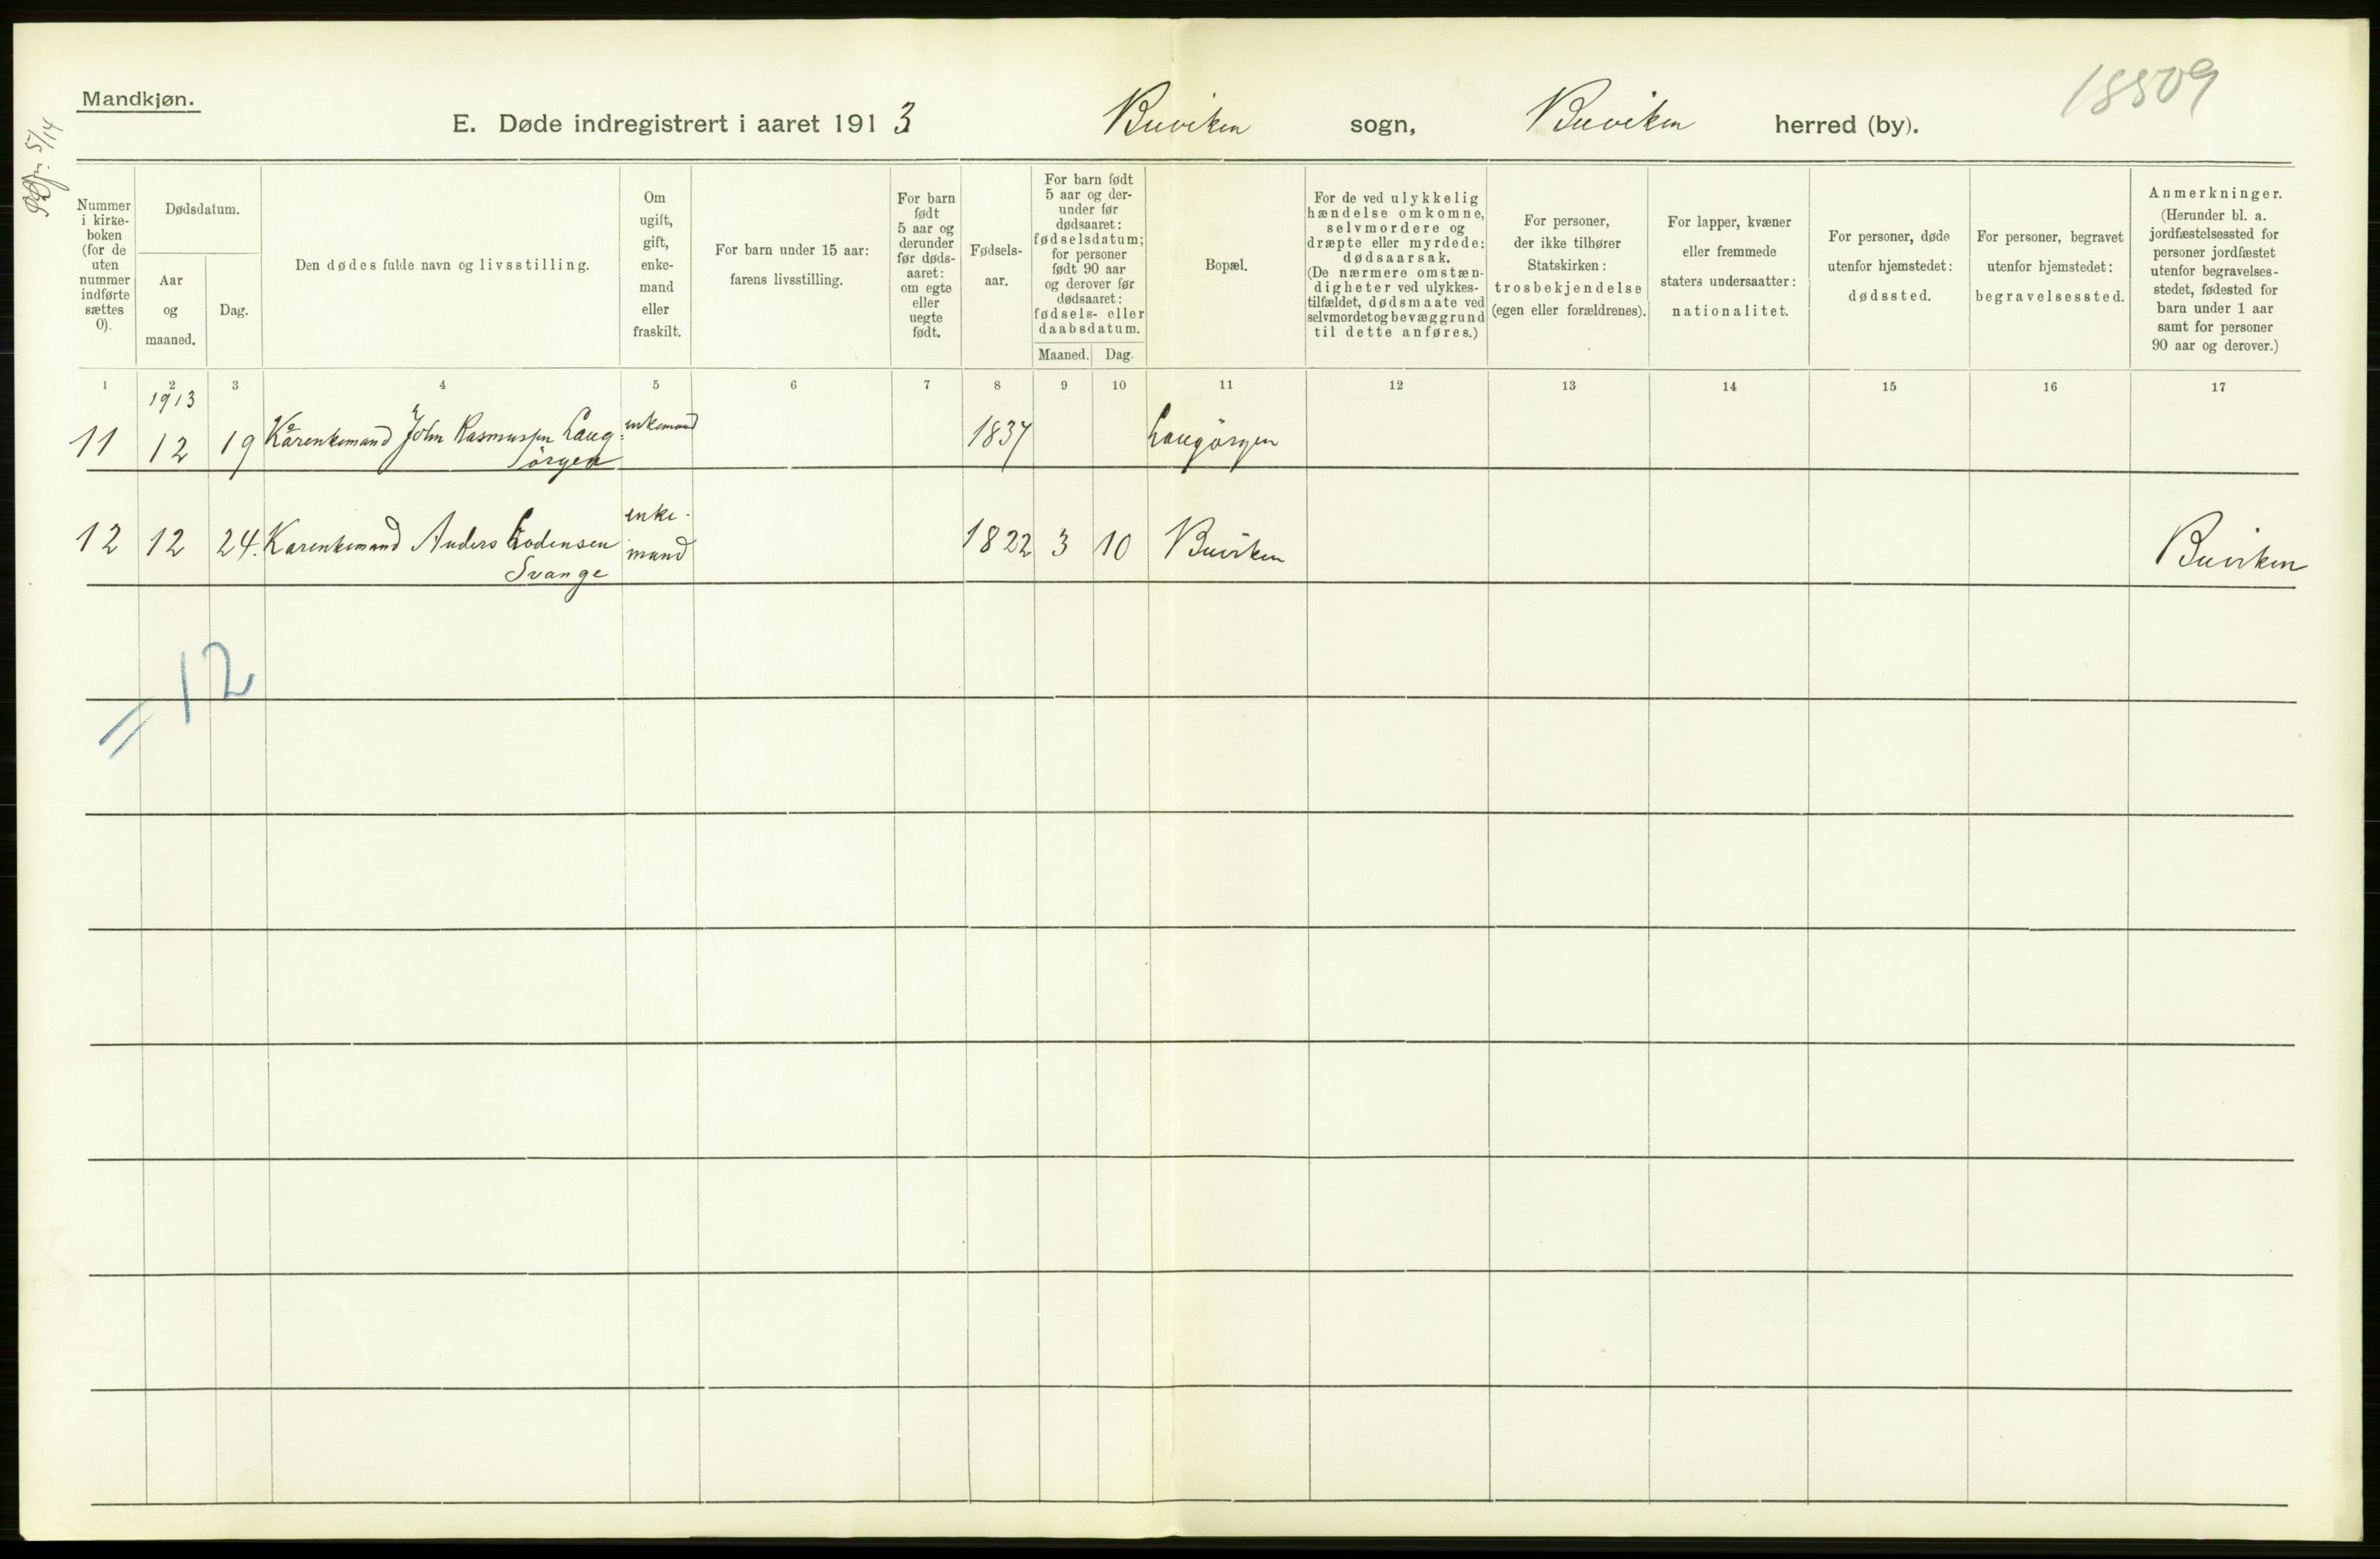 Mandkjøn.
E. Døde indregistrert i aaret 1913 Buviken sogn, Buviken herred (by).
18509
5/14
Nummer i kirke- boken (for de uten nummer indførte sættes 0).
Dødsdatum.
Aar og maaned.
Dag.
Den dødes fulde navn og livsstilling.
Om ugift, gift, enke- mand eller fraskilt.
For barn under 15 aar: farens livsstilling.
For barn født 5 aar og derunder før døds- aaret: om egte eller uegte født.
Fødsels- aar.
For barn født 5 aar og der- under før dødsaaret: fødselsdatum; for personer født 90 aar og derover før dødsaaret: fødsels- eller daabsdatum.
Maaned. Dag.
Bopæl.
For de ved ulykkelig hændelse omkomne, selvmordere og dræpte eller myrdede: dødsaarsak. (De nærmere omstæn- digheter ved ulykkes- tilfældet, dødsmaate ved selvmordet og bevæggrund til dette anføres.)
For personer, der ikke tilhører Statskirken: trosbekjendelse (egen eller forældrenes).
For lapper, kvæner eller fremmede staters undersaatter: nationalitet.
For personer, døde utenfor hjemstedet: dødssted.
For personer, begravet utenfor hjemstedet: begravelsessted.
Anmerkninger. (Herunder bl. a. jordfæstelsessted for personer jordfæstet utenfor begravelses- stedet, fødested for barn under 1 aar samt for personer 90 aar og derover.)
1 2 3 4 5 6 7 8 9 10 11 12 13 14 15 16 17
1913
11 12 19 Kårenkemand John Rasmussen Laug- enkemand 1837 Laugörgen
örgen
enke-
12 12 24. Karenkemand Anders Lodensen mand 1822 3 10 Buviken Buviken
Svange
= 12